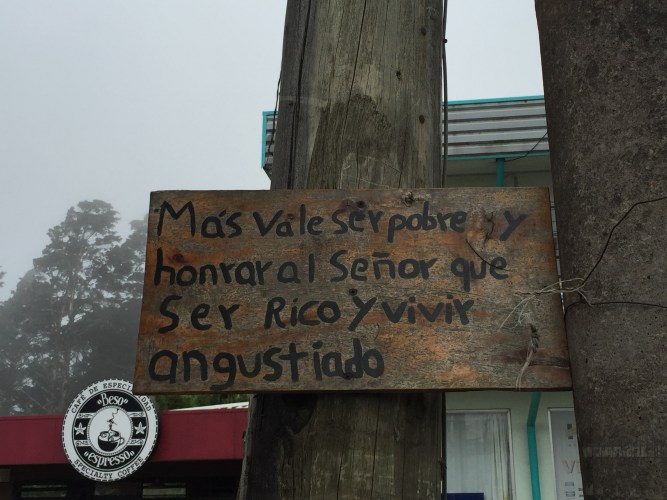 Más Vale ser pobre y
honrar al Señor que
Ser Rico Y vivir
angustiado
CAFÉ DE ESPECIALIDAD
"Beso"
espresso"
SPECIALTY COFFEE